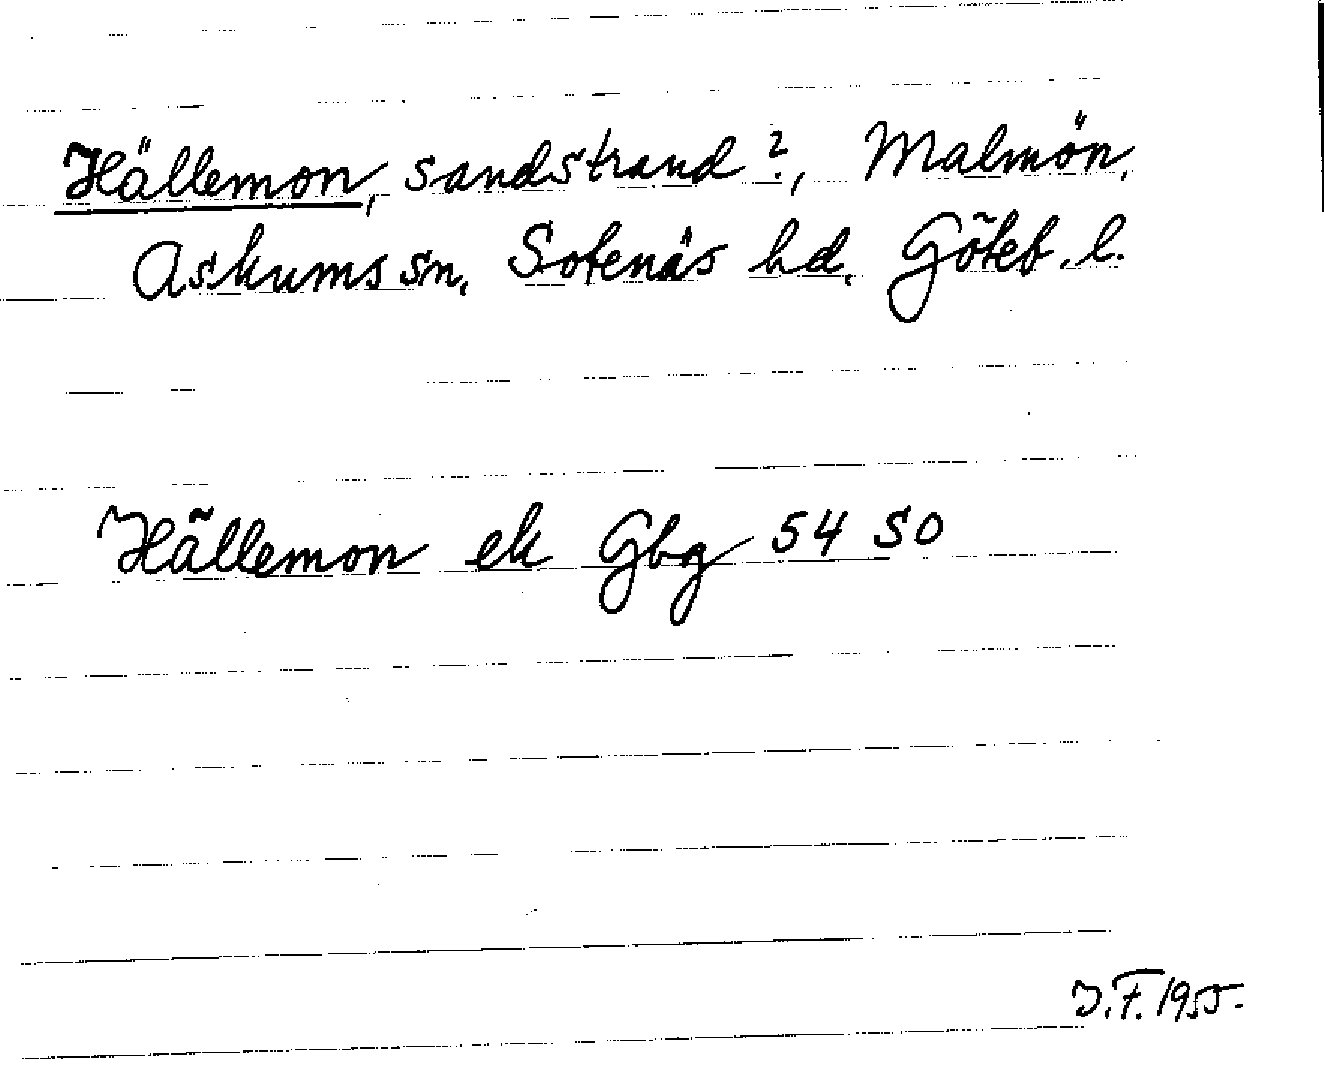 Hällemon, sandstrand?, Malmön,
Askums sn, Sotenäs hd, Göteb. l.
Hällemon ek Gbg 54 SO
J.F. 1955.